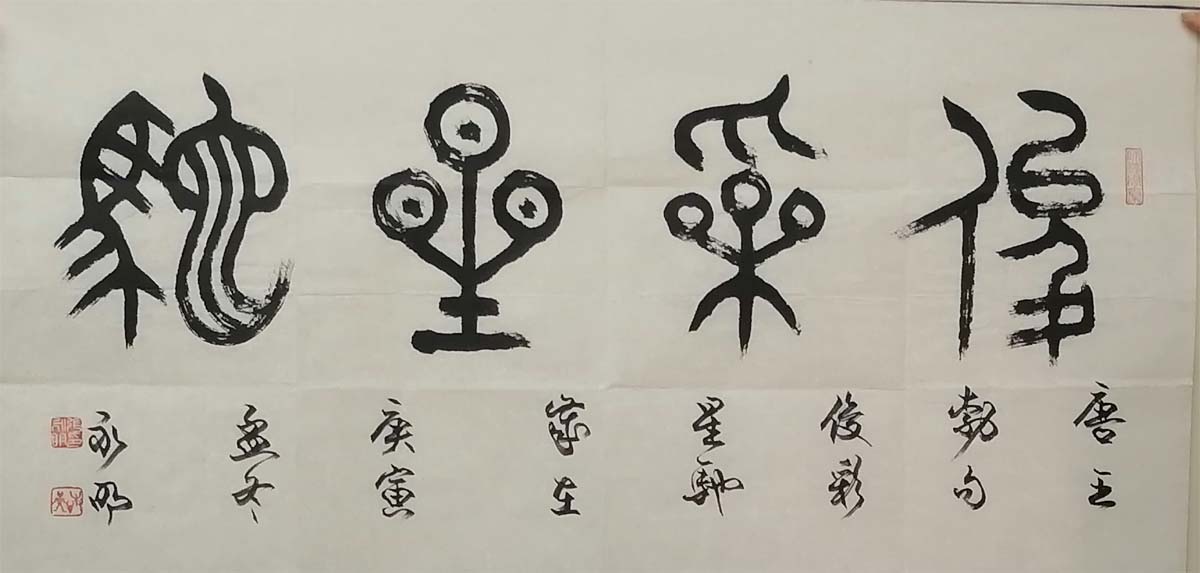 俊采星馳
唐王
勃句
俊彩
星馳
歲在
庚寅
孟冬
永明